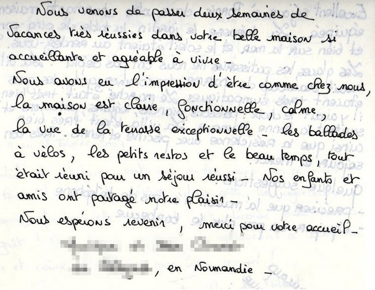 Nous venons de passer deux semaines de
vacances très réussies dans votre belle maison si
accueillante et agréable à vivre -
Nous avons eu l'impression d'être comme chez nous,
la maison est claire, fonctionnelle, calme,
la vue de la terrasse exceptionnelle - les ballades
à vélos, les petits restos et le beau temps, tout
était réuni pour un séjour réussi - Nos enfants et
amis ont partagé notre plaisir -
Nous espérons revenir, merci pour votre accueil -
, en Normandie -